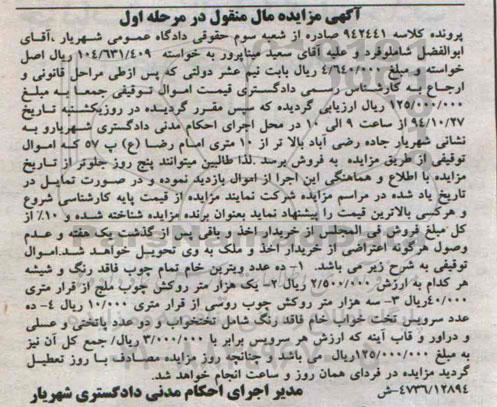 آگهی مزایده مال منقول در مرحله اول
پرونده کلاسه ۹۴۲۴۴۱ صادره از شعبه سوم حقوقی دادگاه عمومی شهریار ،آقای
ابوالفضل شاملوفرد علیه آقای سعید میناپرور به خواسته ۱۰۴/۶۳۱/۴۰۹ ریال اصل
خواسته و مبلغ ۴/۶۴۰/۰۰۰ ریال بابت نیم عشر دولتی که پس ازطی مراحل قانونی و
ارجاع به کارشناس رسمی دادگستری قیمت اموال توقیفی جمعا به مبلغ
۱۲۵/۰۰۰/۰۰۰ ریال ارزیابی گردیده که سپس مقرر گردیده در روزیکشنبه تاریخ
۹۴/۱۰/۲۷ از ساعت ۹ الی ۱۰ در محل اجرای احکام مدنی دادگستری شهریارو به
نشانی شهریار جاده رضی آباد بالا تر از ۱۰ متری امام رضا (ع) پ ۵۷ که اموال
توقیفی از طریق مزایده به فروش برسد .لذا طالبین میتوانند پنج روز جلوتر از تاریخ
مزایده با اطلاع و هماهنگی این اجرا از اموال بازدید نموده و در صورت تمایل در
تاریخ یاد شده در مراسم مزایده شرکت نمایند مزایده از قیمت پایه کارشناسی شروع
و هرکسی بالاترین قیمت را پیشنهاد نماید بعنوان برنده مزایده شناخته شده و ۱۰٪ از
کل مبلغ فروش فی المجلس از خریدار اخذ و باقی بعد از گذشت یک هفته و عدم
وصول هرگونه اعتراضی از خریدار اخذ و ملک به وی تحویل خواهد شد.اموال
توقیفی به شرح زیر می باشد. ۱- ده عدد ویترین خام تمام چوب فاقد رنگ و شیشه
هر کدام به ارزش ۲/۵۰۰/۰۰۰ ریال ۲- یک هزار متر روکش چوب ملچ از قرار متری
۴۰/۰۰۰ریال ۳- سه هزار متر روکش چوب روسی از قرار متری ۱۰/۰۰۰ ریال ۴- ده
عدد سرویس تخت خواب خام فاقد رنگ شامل تختخواب و دو عدد پاتختی و عسلی
و دراور و قاب آینه که ارزش هر سرویس برابر با ۳/۰۰۰/۰۰۰ ریال/ جمع کل آن نیز
به مبلغ ۱۲۵/۰۰۰/۰۰۰ریال می باشد و چنانچه روز مزایده مصادف با روز تعطیل
گردید مزایده در فردای همان روز و ساعت انجام خواهد شد.
۴۷۳۶/۱۲۸۹۴-ش مدیر اجرای احکام مدنی دادگستری شهریار